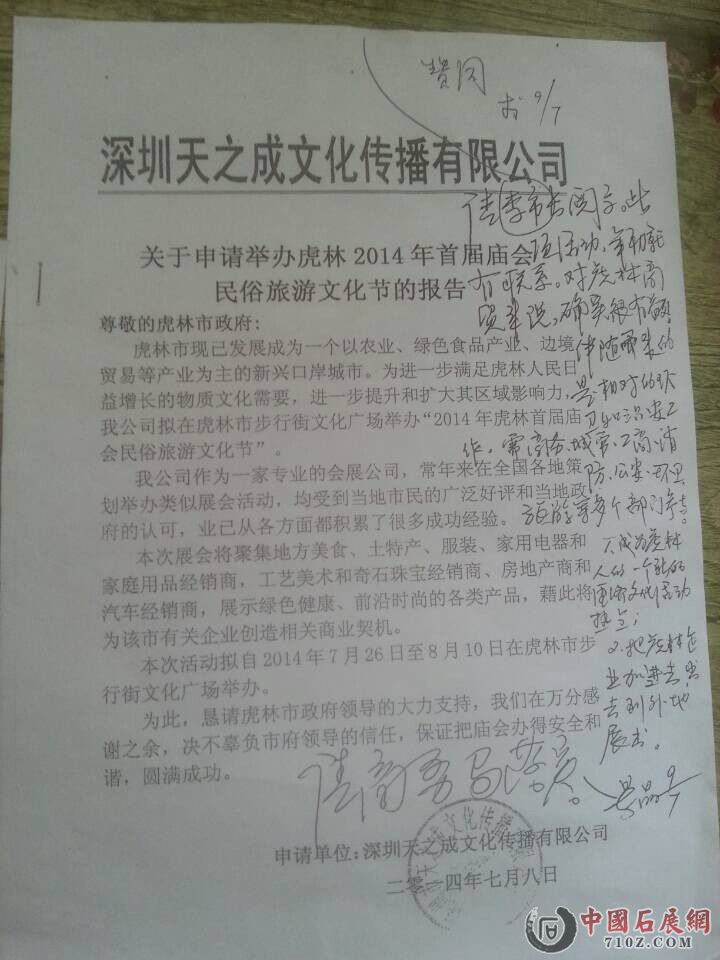 赞同
9/7
深圳天之成文化传播有限公司
请李市长阅示。此
关于申请举办虎林2014年首届庙会
项活动,年初就
民俗旅游文化节的报告
有联系。对虎林商
尊敬的虎林市政府:
虎林市现已发展成为一个以农业、绿色食品产业、边境
贸易等产业为主的新兴口岸城市。为进一步满足虎林人民日
益增长的物质文化需要,进一步提升和扩大其区域影响力,
我公司拟在虎林市步行街文化广场举办“2014年虎林首届庙
会民俗旅游文化节”。
我公司作为一家专业的会展公司,常年来在全国各地策
划举办类似展会活动,均受到当地市民的广泛好评和当地政
府的认可,业已从各方面都积累了很多成功经验。
本次展会将聚集地方美食、土特产、服装、家用电器和
家庭用品经销商,工艺美术和奇石珠宝经销商、房地产商和
汽车经销商,展示绿色健康、前沿时尚的各类产品,藉此将
为该市有关企业创造相关商业契机。
本次活动拟自2014年7月26日至8月10日在虎林市步
行街文化广场举办。
为此,恳请虎林市政府领导的大力支持,我们在万分感
谢之余,决不辜负市府领导的信任,保证把庙会办得安全和
谐,圆满成功。
作,需商务、城管、工商、消
防、公安、环卫
旅游等多个部门
热点;
2、把虎林企
展出。
请商务局落实。
9/7
申请单位:深圳天之成文化传播有限公司
二零一四年七月八日
文化传播
中國石展網
710Z.COM